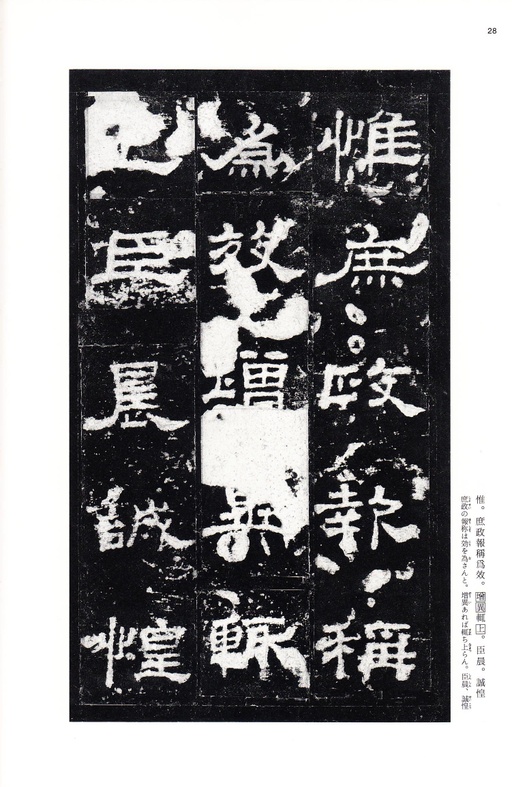 28
惟。庶政報稱爲效。增異輒上。臣晨。誠惶
庶政の報称は効を為さんと。増異あれば輒ち上らん。臣晨、誠惶
惟庶政報稱
爲效增異輒
上臣晨誠惶